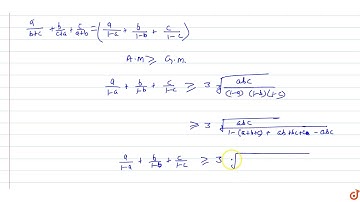 a/(b+c) + b/(c+a) + c/(a+b) = (a/(1-a) + b/(1-b) + c/(1-c))
A.M ≥ G.M.
a/(1-a) + b/(1-b) + c/(1-c) ≥ 3 ∛(abc/((1-a)(1-b)(1-c)))
≥ 3 ∛(abc/(1-(a+b+c) + ab+bc+ca - abc))
a/(1-a) + b/(1-b) + c/(1-c) ≥ 3 ∛